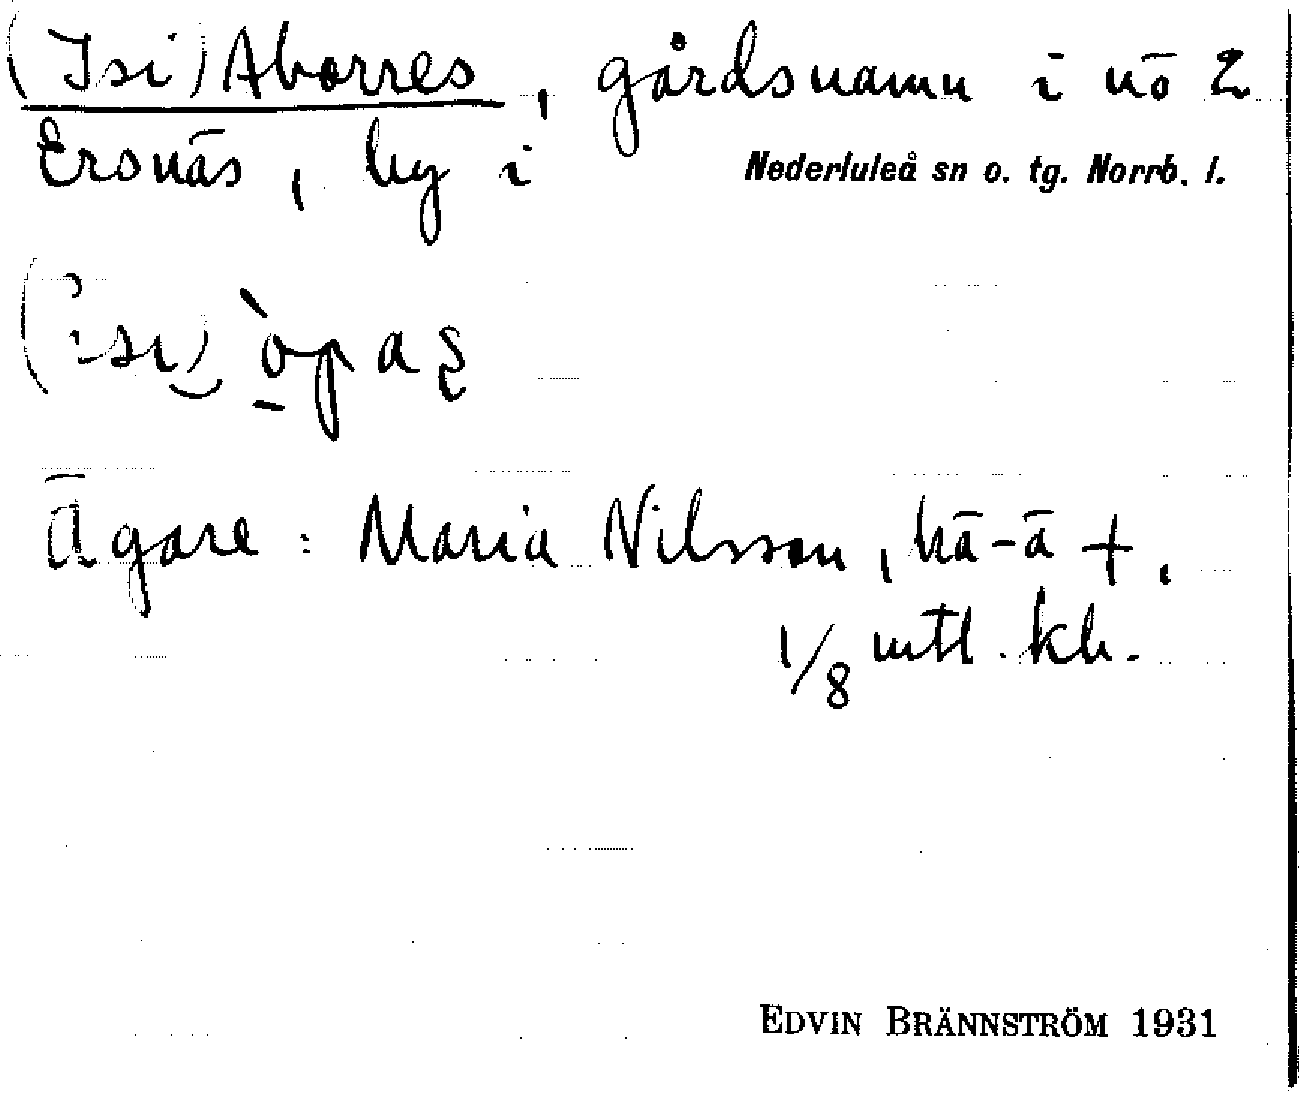 (Isi) Aborres, gårdsnamn i nö 2
Ersnäs, by i Nederluleå sn o. tg. Norrb. l.
(isi) òpas
Ägare: Maria Nilsson, hä-ä +,
1/8 mtl. kh.
EDVIN BRÄNNSTRÖM 1931